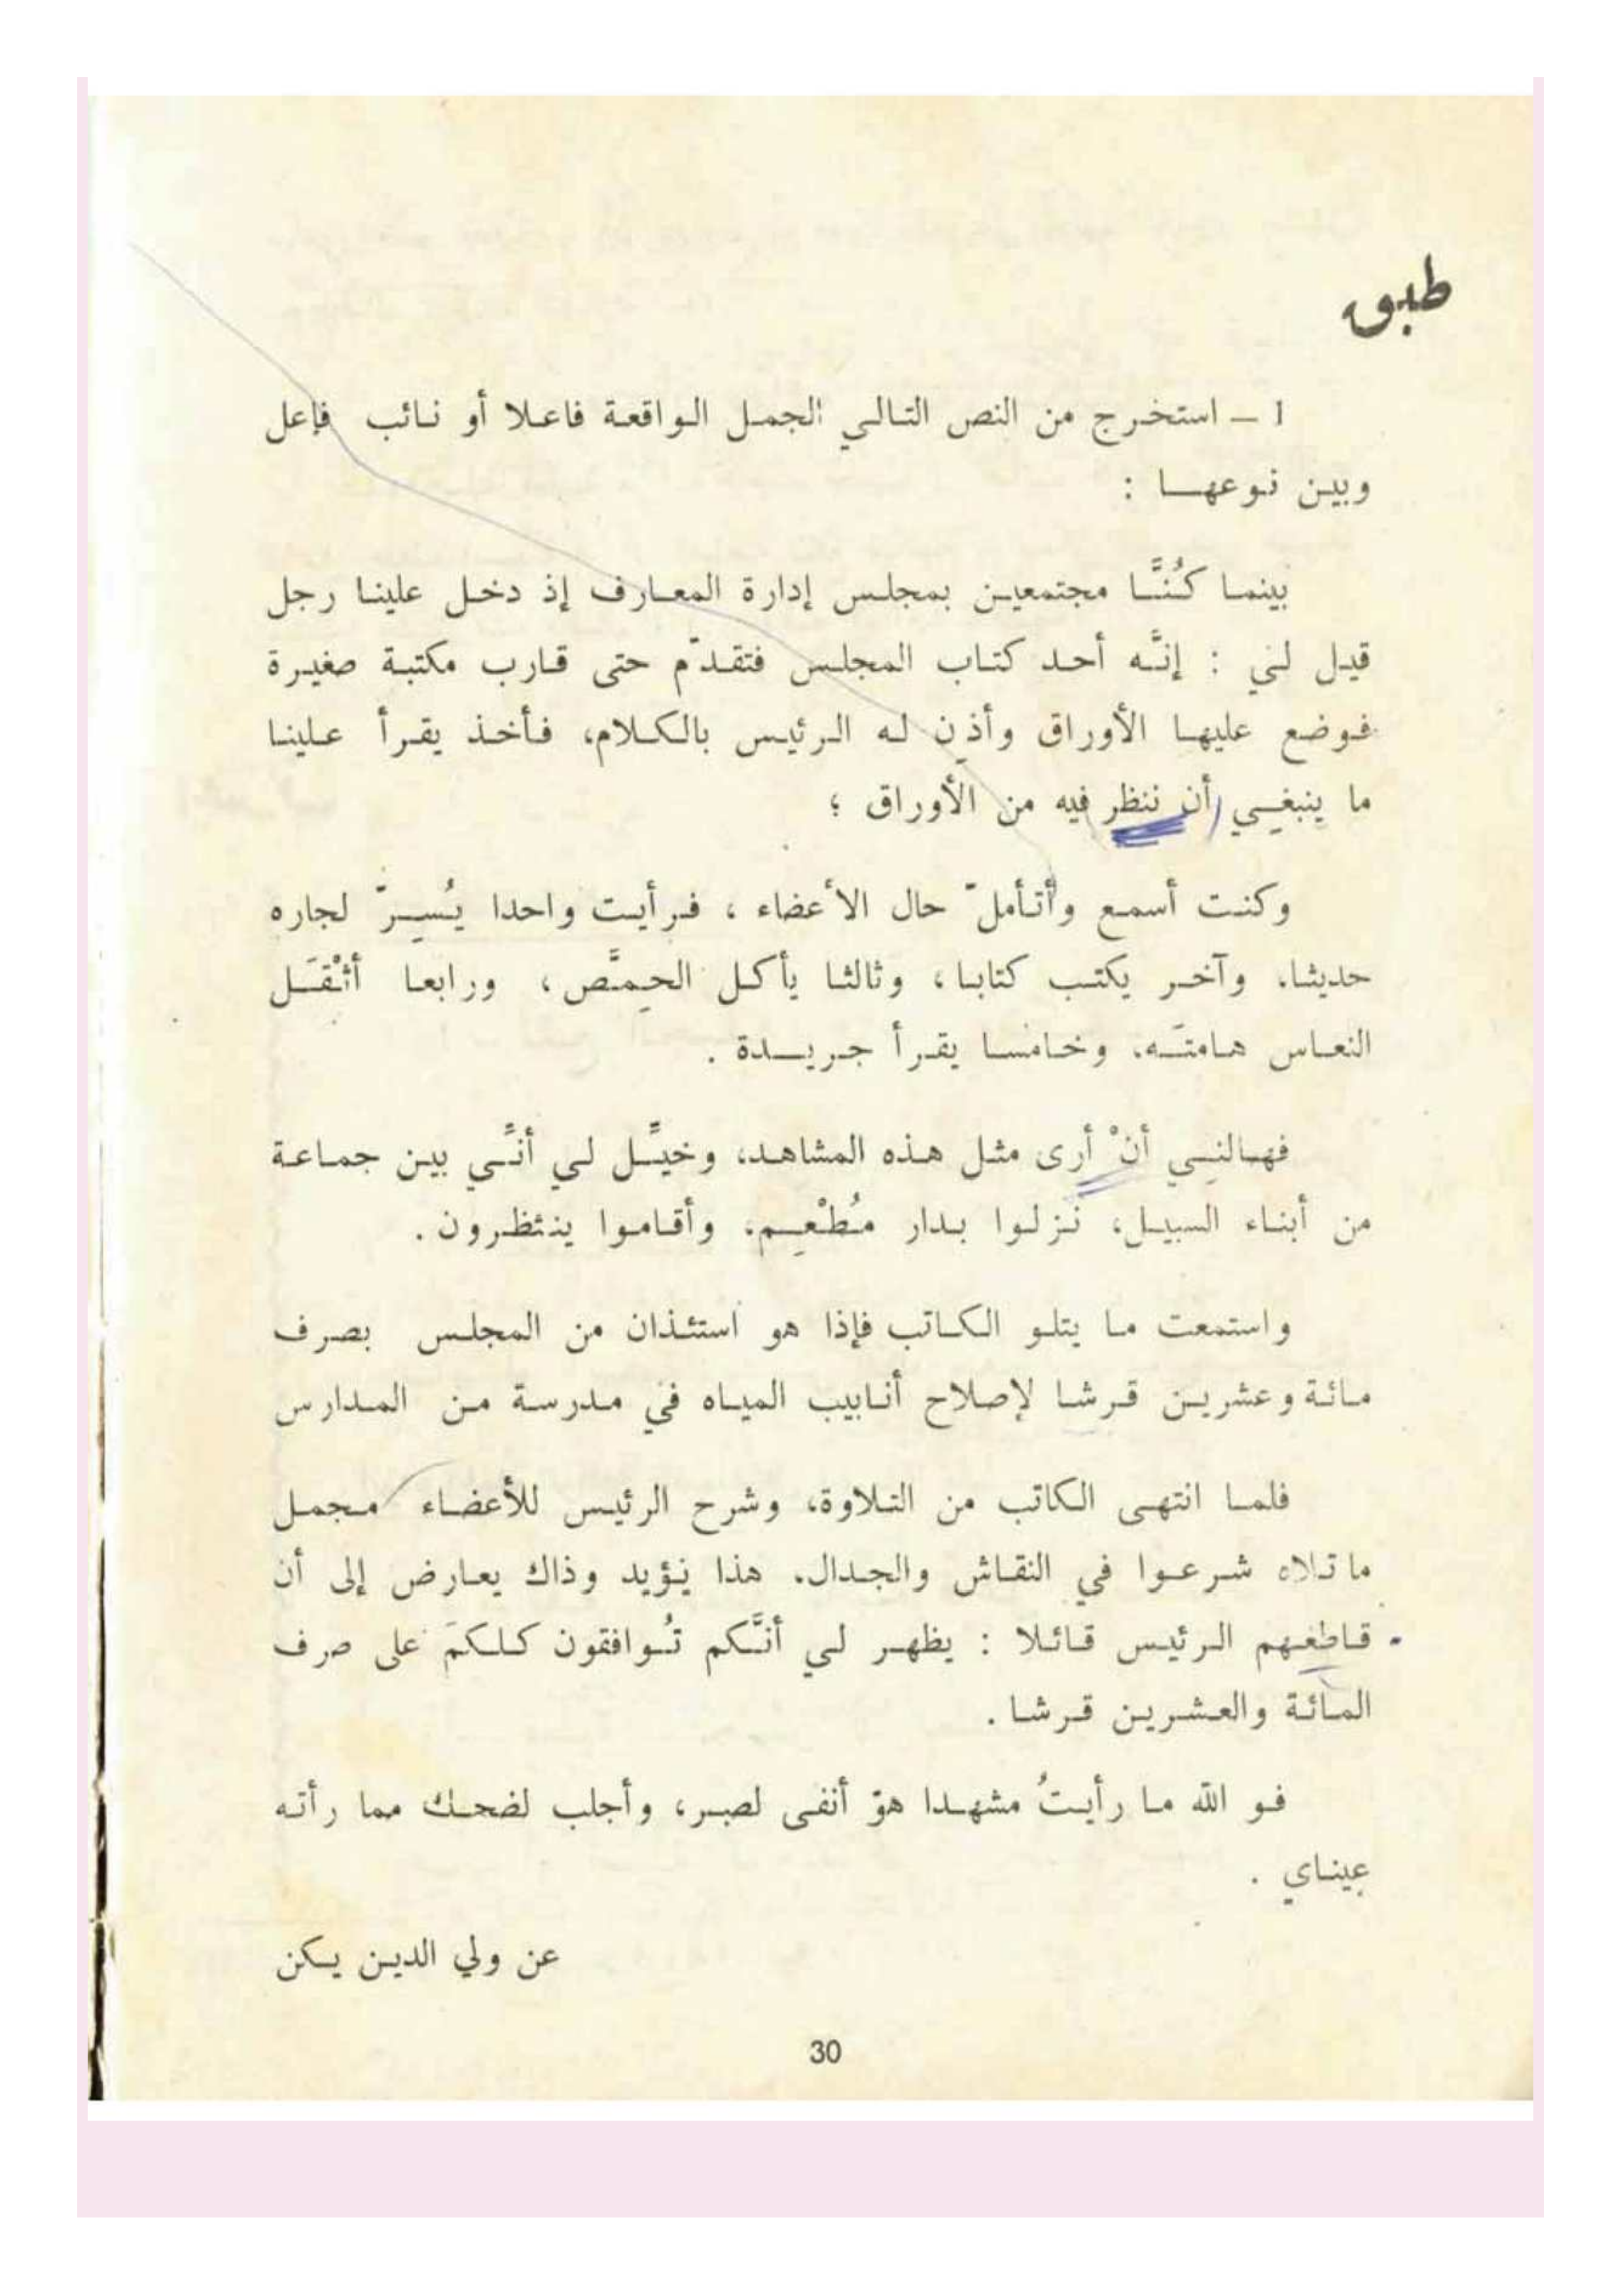 طبق
1 ـ استخرج من النص التالي الجمل الواقعة فاعلا أو نائب فاعل
وبين نوعها :
بينما كُنَّا مجتمعين بمجلس إدارة المعارف إذ دخل علينا رجل
قيل لي : إنَّه أحد كتاب المجلس فتقدّم حتى قارب مكتبة صغيرة
فوضع عليها الأوراق وأذن له الرئيس بالكلام، فأخذ يقرأ علينا
ما ينبغي أن ننظر فيه من الأوراق ؛
وكنت أسمع وأتأملّ حال الأعضاء ، فرأيت واحدا يُسِرّ لجاره
حديثا، وآخر يكتب كتابا، وثالثا يأكل الحِمَّص، ورابعا أثْقَل
النعاس هامتَه، وخامسا يقرأ جريدة .
فهالني أنْ أرى مثل هذه المشاهد، وخيَّل لي أنَّي بين جماعة
من أبناء السبيل، نزلوا بدار مُطْعِم، وأقاموا ينتظرون .
واستمعت ما يتلو الكاتب فإذا هو استئذان من المجلس بصرف
مائة وعشرين قرشا لإصلاح أنابيب المياه في مدرسة من المدارس
فلما انتهى الكاتب من التلاوة، وشرح الرئيس للأعضاء مجمل
ما تلاه شرعوا في النقاش والجدال. هذا يؤيد وذاك يعارض إلى أن
قاطعهم الرئيس قائلا : يظهر لي أنَّكم تُوافقون كلكم على صرف
المائة والعشرين قرشا .
فو الله ما رأيتُ مشهدا هو أنفى لصبر، وأجلب لضحك مما رأته
عيناي .
عن ولي الدين يكن
30